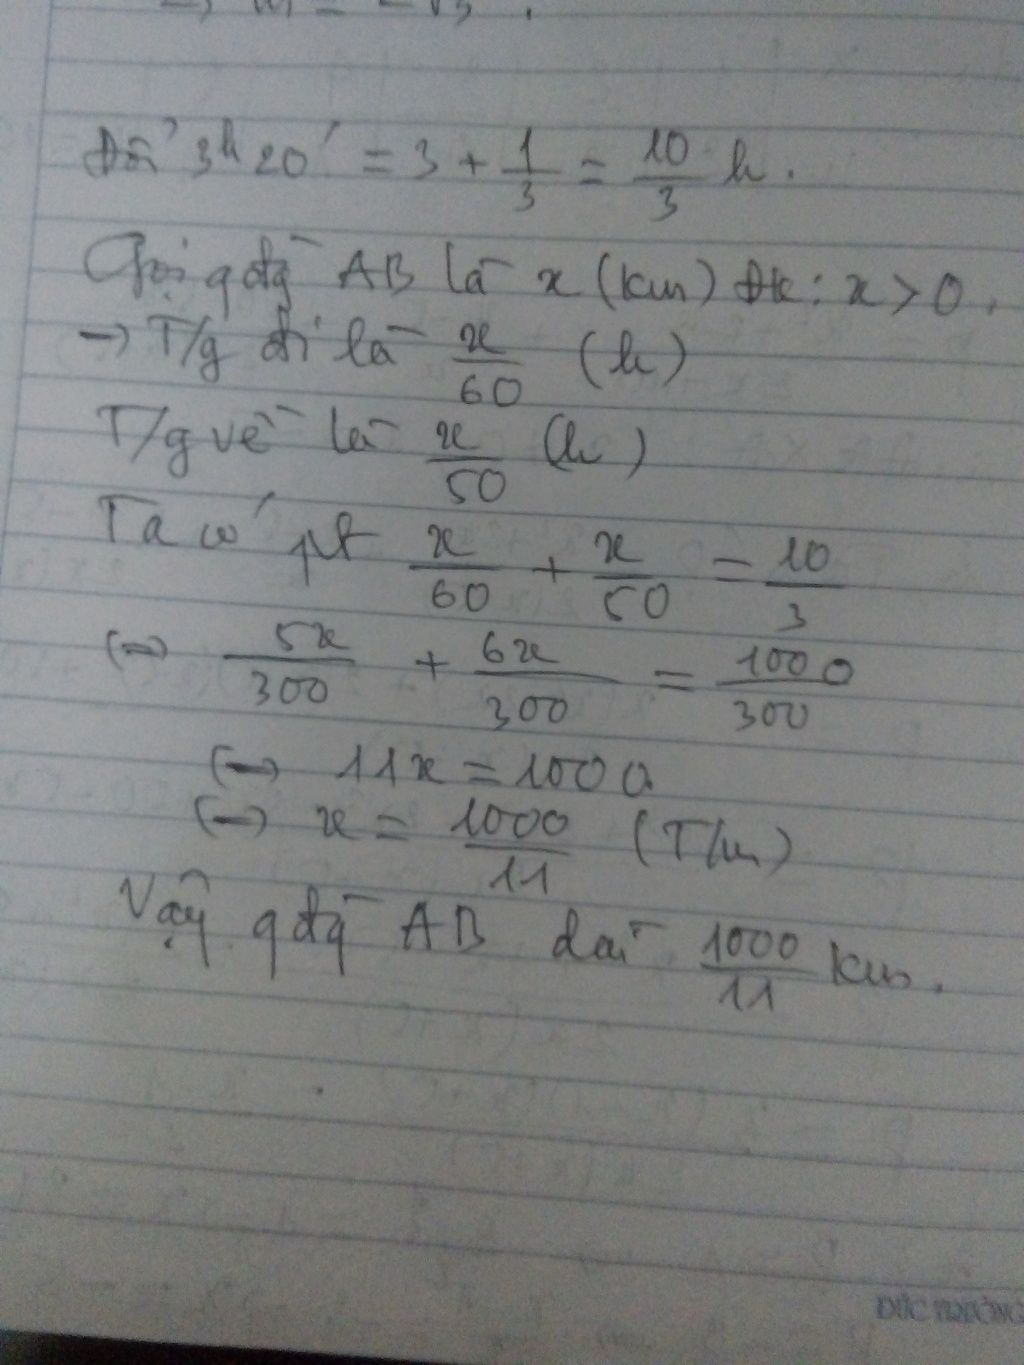 Đổi 3h20' = 3 + 1/3 = 10/3 h.
Gọi qđg AB là x (km) Đk: x > 0.
→ T/g đi là x/60 (h)
T/g về là x/50 (h)
Ta có pt x/60 + x/50 = 10/3
(=) 5x/300 + 6x/300 = 1000/300
(=) 11x = 1000
(=) x = 1000/11 (T/m)
Vậy qđg AB dài 1000/11 km.